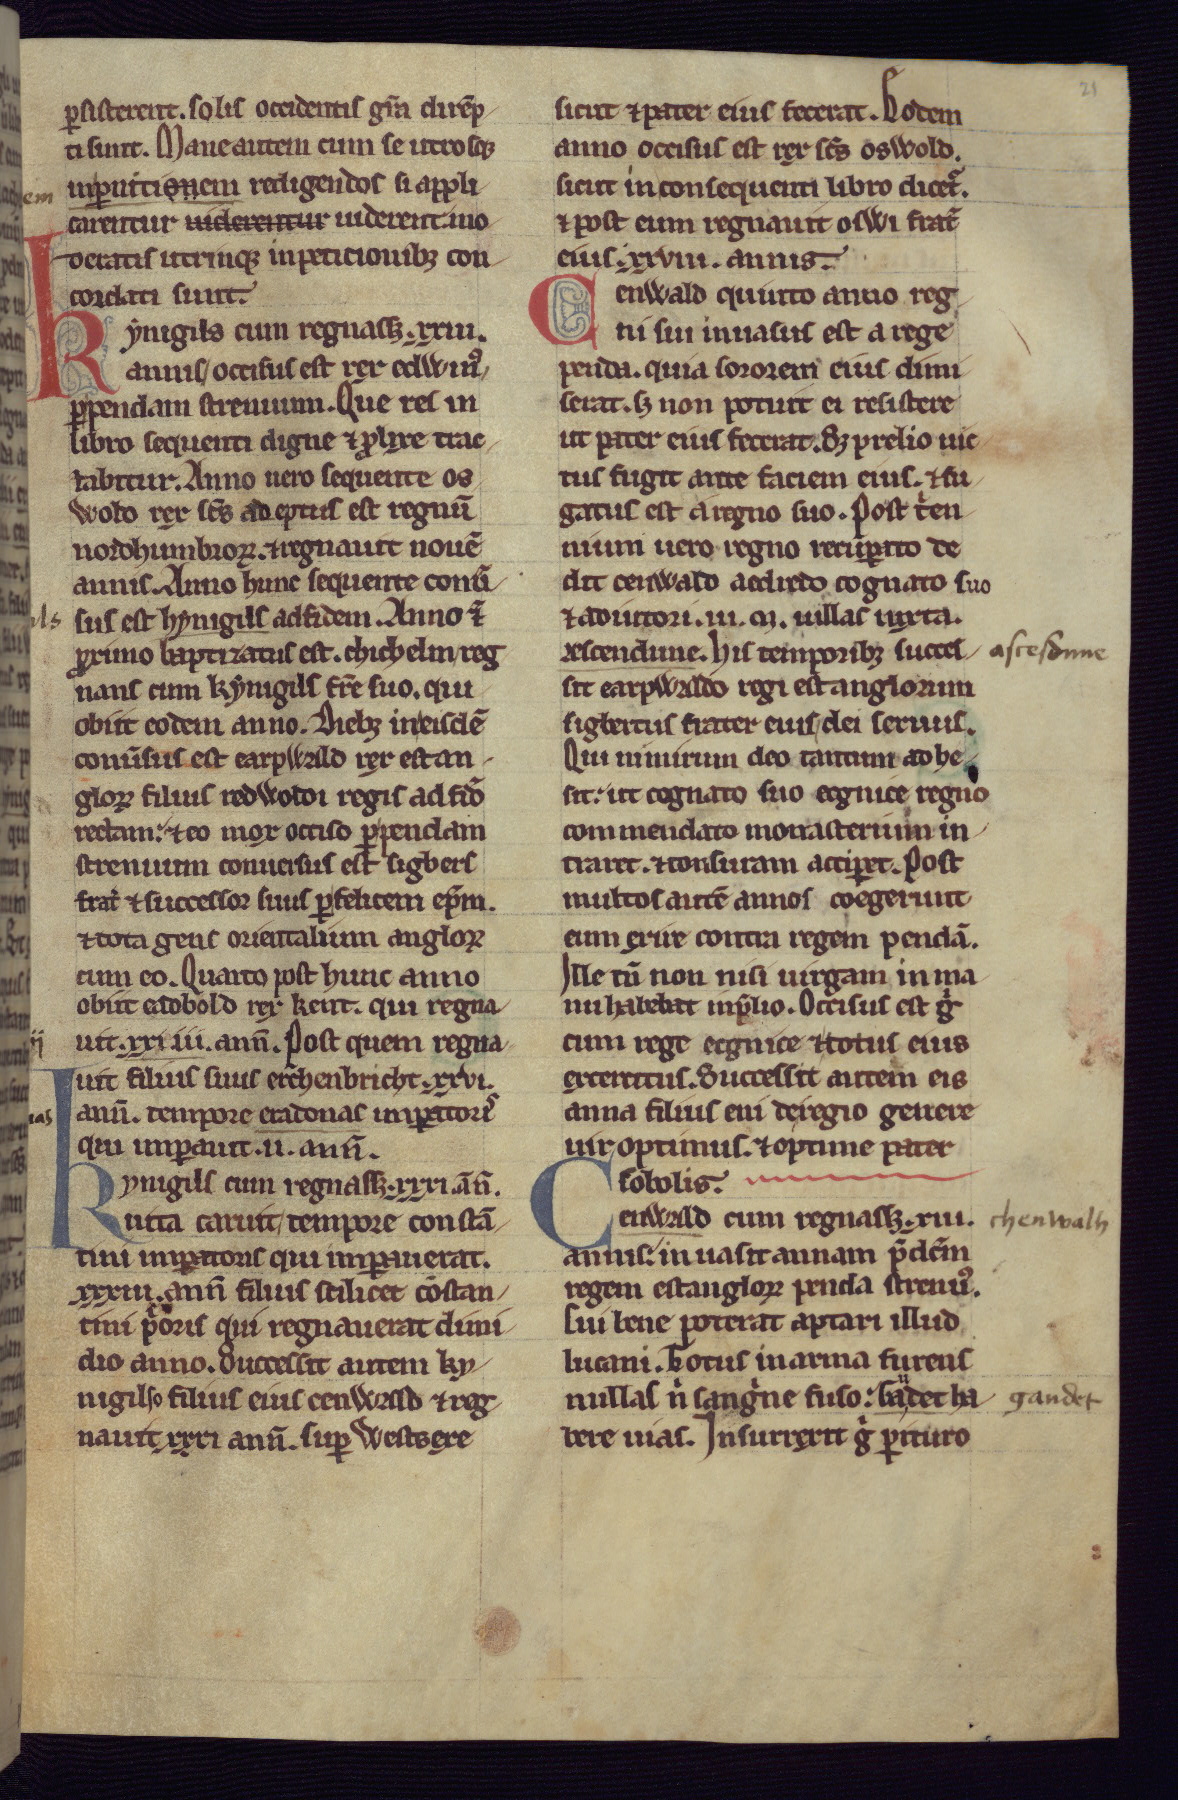 21
persisterent. solis occidentis gr̄a dirēp
ti sunt. Mane autem cum se utrosqʒ
inpernitionem redigendos si appli
em
carentur uiderentur uiderent. mo
deratis utrinqʒ in peticionibʒ con
cordati sunt.
Kynigils cum regnassʒ .xxiii.
annis occisus est rex edwinꝰ
per pendam strenuum. Que res in
libro sequenti digne ⁊ prolixe trac
tabitur. Anno uero sequente os
wold rex sc̄s adeptus est regnū
nordhumbroꝝ. ⁊ regnauit nouē
annis. Anno hunc sequente conūˀ
sus est hynigils ad fidem. Anno ūˀ
ils
proximo baptizatus est. chichelm reg
nans cum kynigils fr̄e suo. qui
obiit eodem anno. Diebʒ in eisdē
conūsus est earpwald rex estan
gloꝝ filius redwoldi regis ad fidē
rectam. ⁊ eo mox occiso per pendam
strenuum conuersus est sigbers
frat̄ ⁊ successor suus per felicem ep̄m.
⁊ tota gens orientalium angloꝝ
cum eo. Quarto post hunc anno
obiit eadbold rex kent. qui regna
uit .xxiiii. ann̄. Post quem regna
ij
uit filius suus erchenbricht .xxvi.
ann̄. tempore eradonas imperatoris
nas
qui imperauit .ii. ann̄.
Kynigils cum regnassʒ .xxxi. ān̄.
uita caruit tempore constā
tini imperatoris qui imperauerat.
xxxiii. ann̄ filius scilicet cōstan
tini prioris qui regnauerat dimi
dio anno. Successit autem ky
nigilso filius eius cenwald ⁊ reg
nauit xxxi ann̄. super westsexe
sicut ⁊ pater eius fecerat. Eodem
anno occisus est rex sc̄s oswold.
sicut in consequenti libro dicet̄.
⁊ post eum regnauit oswi frat̄
eius .xxviii. annis.
Cenwald quinto anno reg
ni sui inuasus est a rege
penda. quia sororem eius dimi
serat. sʒ non potuit ei resistere
ut pater eius fecerat. Sʒ prelio uic
tus fugit ante faciem eius. ⁊ fu
gatus est a regno suo. Post trien
nium uero regno recuperato de
dit cenwald aedredo cognato suo
⁊ adiutori .iii. m. uillas iuxta
escendune. His temporibʒ succes
ascesdune
sit earpwaldo regi estanglorum
sigbertus frater eius dei seruus.
Qui nimirum deo tantum adhe
sit. ut cognato suo ecgnice regno
commendato monasterium in
traret. ⁊ tonsuram acciperet. Post
multos autē annos coegerunt
eum exire contra regem pendā.
Ille tn̄ non nisi uirgam in ma
nu habebat in prelio. Occisus est gͥ
cum rege ecgnice ⁊ totus eius
exercitus. Successit autem eis
anna filius eni de regio genere
uir optimus. ⁊ optime pater
sobolis.
Cenwald cum regnassʒ .xiii.
chenwalh
annis. inuasit annam p̄dcm̄
regem estangloꝝ penda strenuꝰ.
Cui bene poterat aptari illud
lucani. Totus in arma furens
nullas ni sanguine fuso. gaudet ha
gaudet
bere uias. Insurrexit gͥ perituro